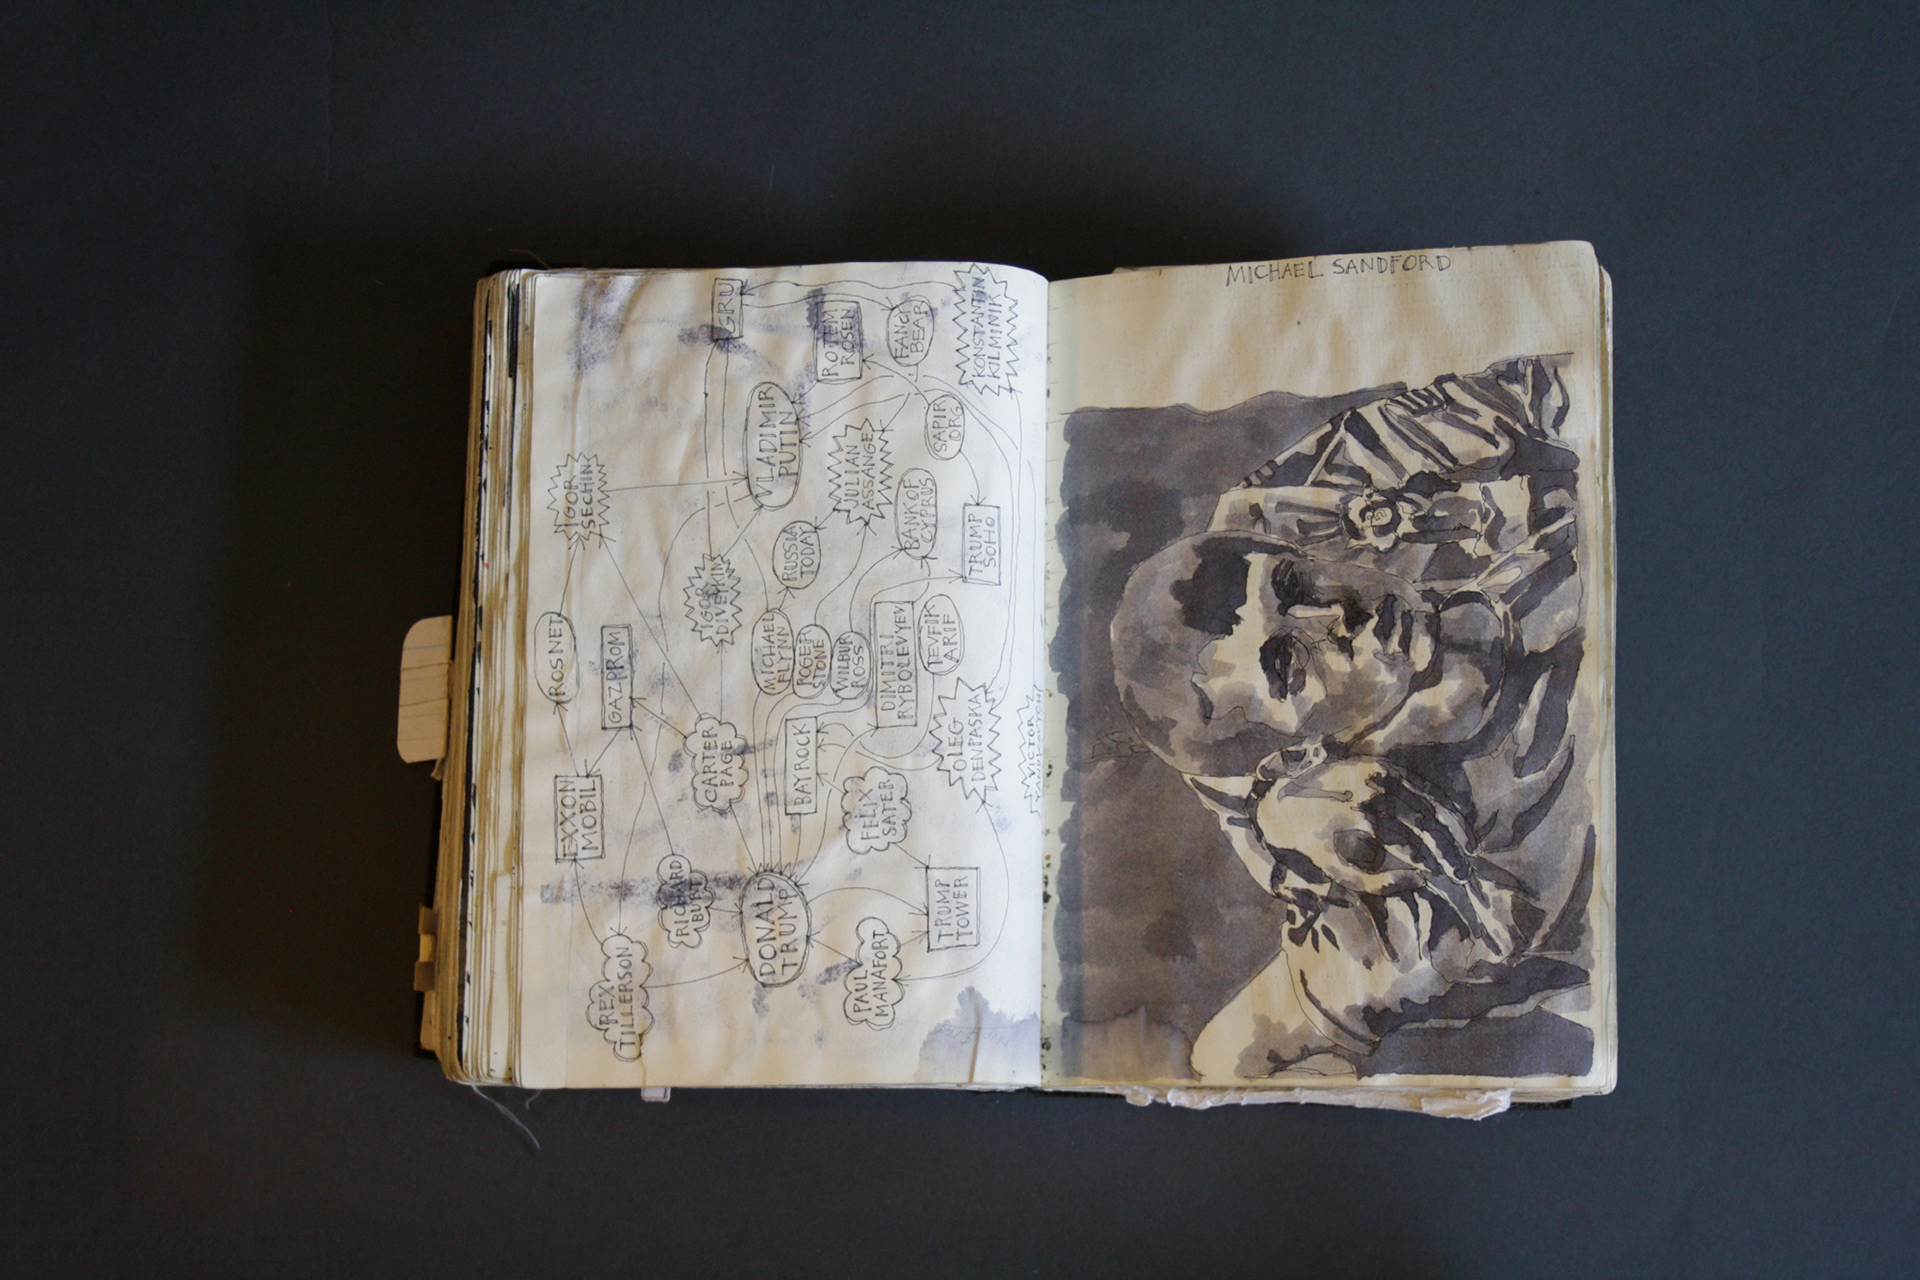 IGOR
SECHIN
ROSNET
GAZPROM
EXXON
MOBIL
REX
TILLERSON
RICHARD
BURT
CARTER
PAGE
IGOR
DIVEYKIN
GRU
VLADIMIR
PUTIN
ROTEM
ROSEN
FANCY
BEAR
KONSTANTIN
KILMINIK
JULIAN
ASSANGE
SAPIR
ORG
RUSSIA
TODAY
BANK OF
CYPRUS
TRUMP
SOHO
MICHAEL
FLYNN
ROGER
STONE
WILBUR
ROSS
DIMITRI
RYBOLEVYEV
TEVFIK
ARIF
BAYROCK
FELIX
SATER
OLEG
DENPASKA
VICTOR
DONALD
TRUMP
PAUL
MANAFORT
TRUMP
TOWER
MICHAEL SANDFORD